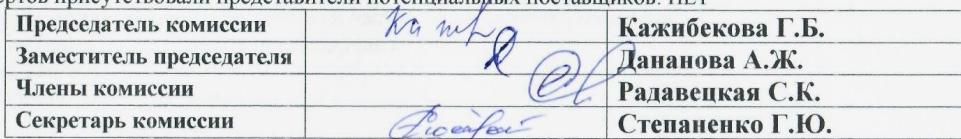 присутствовали представители потенциальных поставщиков.
Председатель комиссии Кажибекова Г.Б.
Заместитель председателя Дананова А.Ж.
Члены комиссии Радавецкая С.К.
Секретарь комиссии Степаненко Г.Ю.